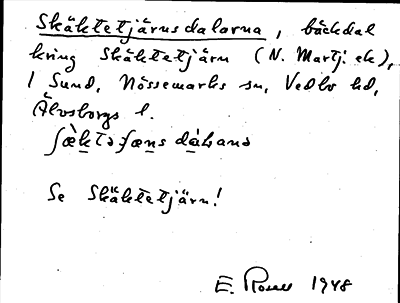 Skäktetjärnsdalarna, bäckdal
kring Skäktetjärn (N. Martj. ek),
1 Sund, Nössemarks sn, Vedbo hd,
Älvsborgs l.
Se Skäktetjärn!
E. Rosell 1948